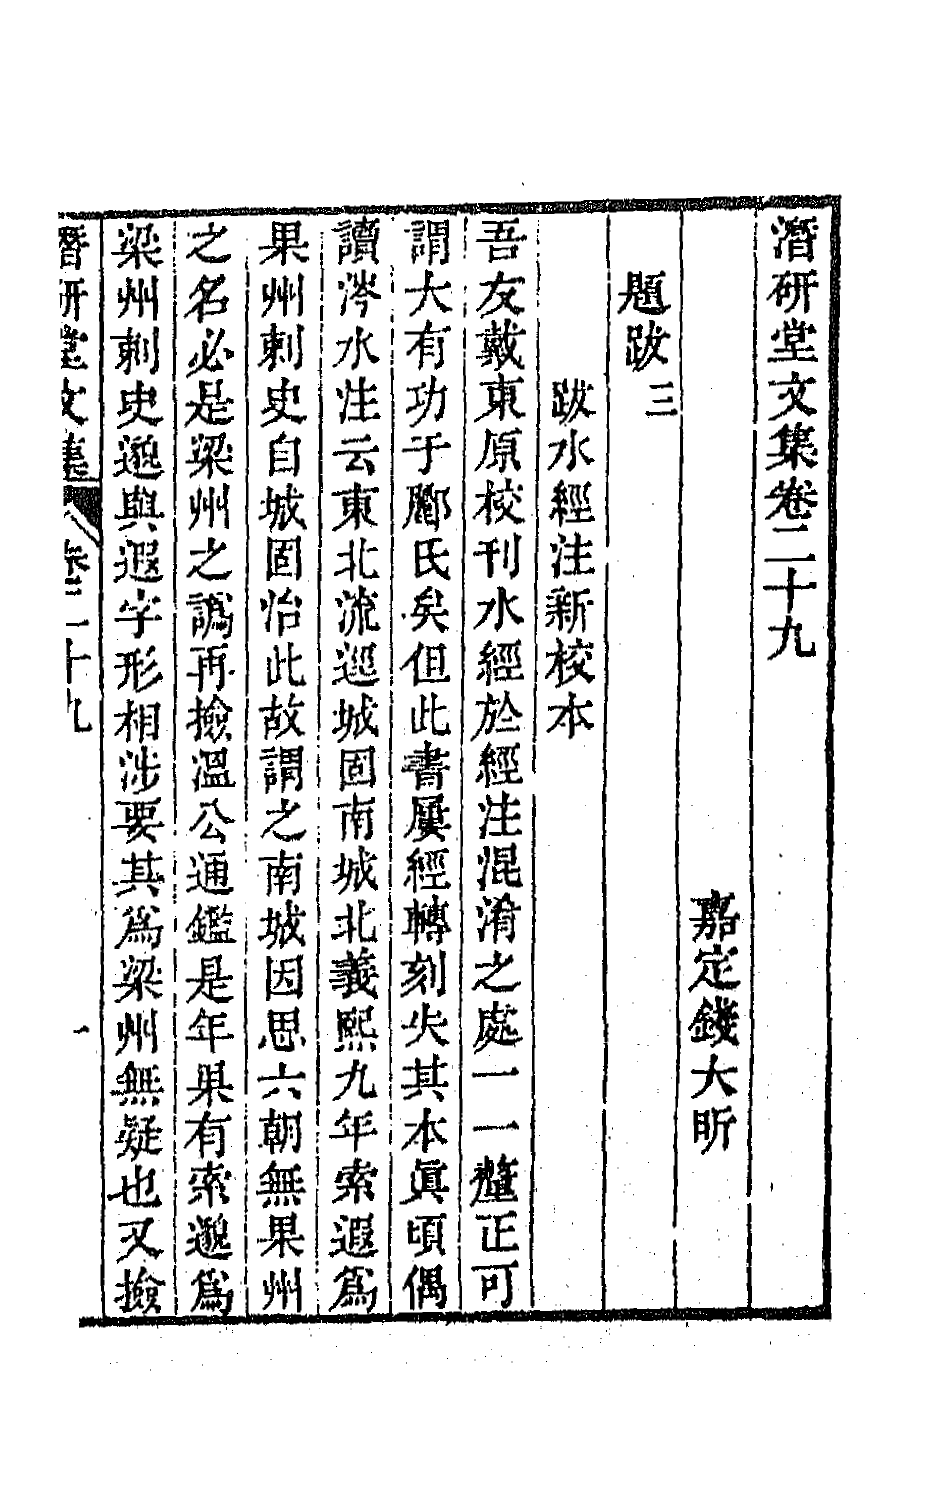 潛研堂文集卷二十九
嘉定錢大昕
題跋三
跋水經注新校本
吾友戴東原校刊水經於經注混淆之處一一釐正可
謂大有功于酈氏矣但此書屢經轉刻失其本眞頃偶
讀涔水注云東北流逕城固南城北義熙九年索遐爲
果州刺史自城固治此故謂之南城因思六朝無果州
之名必是梁州之譌再撿溫公通鑑是年果有索邈爲
梁州刺史邈與遐字形相涉要其爲梁州無疑也又撿
潛研堂文集 卷二十九 一